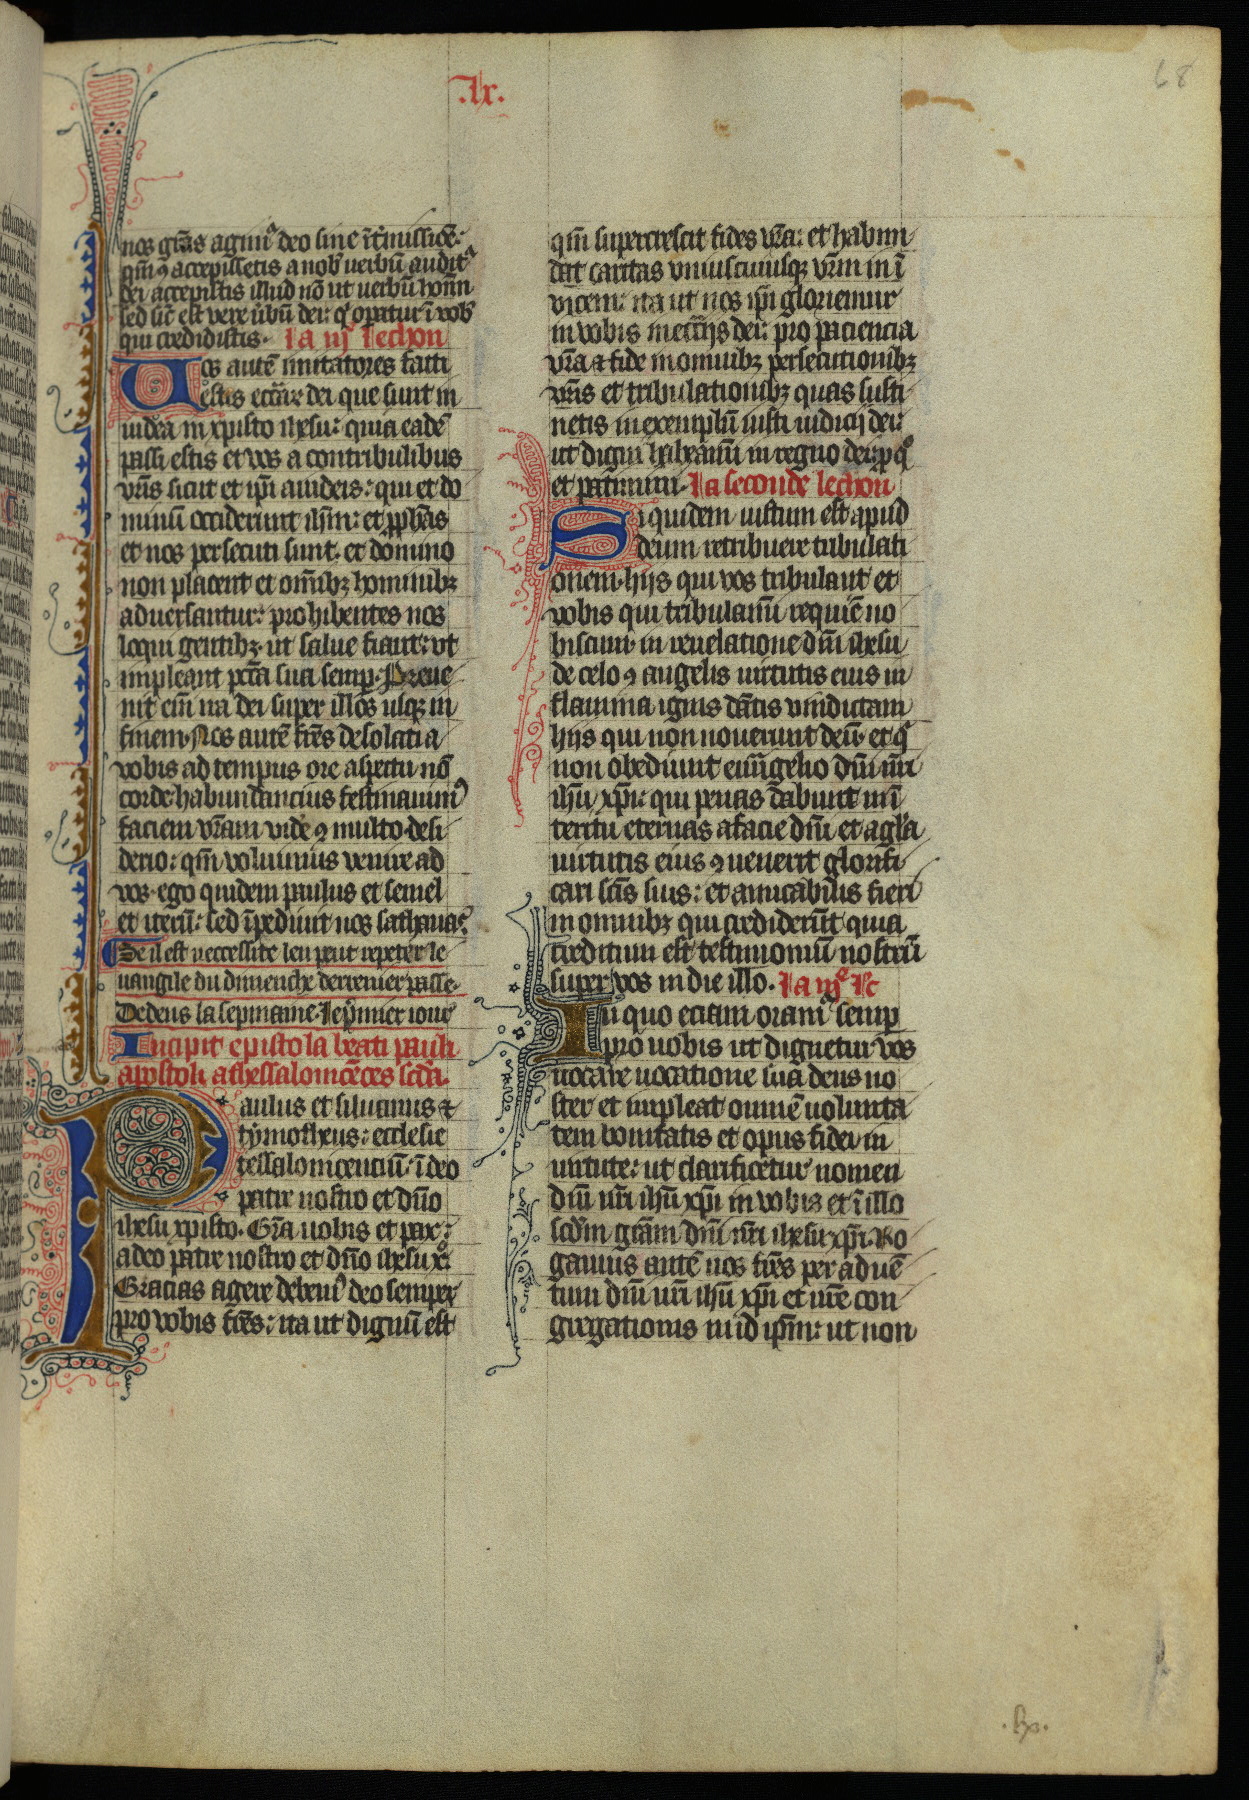 .lx.
68
nos gr̃as agimꝰ deo sine ĩtmissiõe:
qm̃ ꝯ accepissetis a nob̃ uerbũ auditꝰ
dei accepistis illud nõ ut uerbũ hom̃
sed sic̃ est vere ũbũ dei: q̃ opatur ĩ vob̃
qui credidistis. la iijͤ lechon
Uos autẽ imitatores facti
estis eccl̃iar̃ dei que sunt in
iudea in xpisto ihesu: quia eadẽ
passi estis et vos a contribulibus
vr̃is sicut et ip̃i a iudeis: qui et do
minũ occiderunt ihm̃: et p̱ph̃as
et nos persecuti sunt. et domino
non placent et om̃ibꝫ hominibꝫ
aduersantur: prohibentes nos
loqui gentibꝫ. ut salue fiant: vt
impleant pcc̃a sua semp̱. Preue
nit em̃ ira dei super illos usqꝫ in
finem. Nos autẽ fr̃es desolati a
vobis ad tempus ore aspectu nõ
corde habundancius festinauimꝰ
faciem vr̃am vidẽ ꝯ multo desi
derio: qm̃ voluimus venire ad
vos. ego quidem paulus et semel
et iterũ: sed ĩpediuit nos sathanas.
Se il est neccessite len peut repeter le
uangile du dimenche derrenier passe.
Dedens la sepmaine. Le p̃mier ioue
Incipit epistola beati pauli
apostoli a thessalonicẽces scda.
Paulus et siluanus ⁊
tymotheus: ecclesie
tessalonicenciũ ĩ deo
patre nostro et dño
ihesu xpisto. Gr̃a uobis et pax:
a deo patre nostro et dño ihesu xͦ:
Gracias agere debemꝰ deo semper
pro vobis fr̃es: ita ut dignũ est
qm̃ supercrescit fides vr̃a: et habun
dat caritas vniuscuiusqꝫ vr̃m in ĩ
vicem: ita ut nos ip̃i gloriemur
in vobis in ecc̃ijs dei: pro paciencia
vr̃a ⁊ fide in omnibꝫ persecutionibꝫ
vr̃is et tribulationibꝫ quas susti
netis in exemplũ iusti iudicij dei:
ut digni habeamĩ in regno dei: p̱ qͦ
et patimini. la seconde lechon
Si quidem iustum est apud
deum retribuere tribulati
onem. hijs qui vos tribulant et
vobis qui tribulamĩ requiẽ no
biscum in reuelatione dñi ihesu
de celo ꝯ angelis uirtutis eius in
flamma ignis dãtis vindictam
hijs qui non nouerunt deũ. et qͥ
non obediunt euũgelio dñi nr̃i
ihũ xp̃i: qui penas dabunt in ĩ
teritu eternas a facie dñi et a gl̃a
uirtutis eius ꝯ uenerit glorifi
cari sc̃is suis: et amirabilis fieri
in omnibꝫ qui crediderũt quia
creditum est testimoniũ nostrũ
super vos in die illo. la iijͤ lc̃
In quo eciam oramꝰ semp̱
pro uobis ut dignetur vos
uocare uocatione sua deus no
ster et impleat omnẽ uolunta
tem bonitatis et opus fidei in
uirtute: ut clarificetur nomen
dñi nr̃i ihũ xp̃i in vobis et ĩ illo
scdm̃ gr̃am dñi nr̃i ihesu xp̃i. Ro
gamus autẽ nos fr̃es per aduẽ
tum dñi nr̃i ihũ xp̃i et nr̃e con
gregationis in id ip̃m: ut non